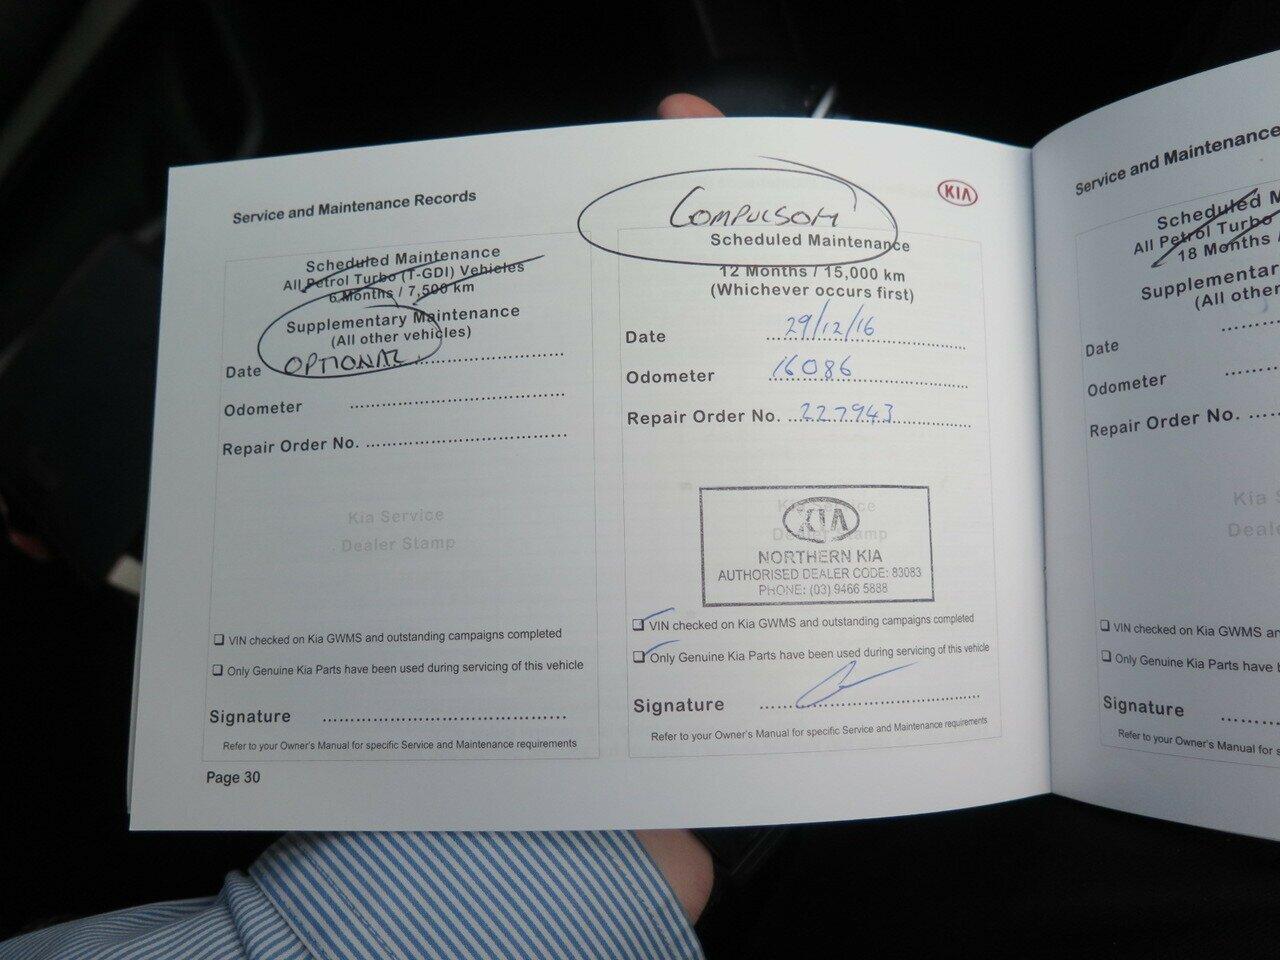 Service and Maintenance Records
Scheduled Maintenance
All Petrol Turbo (T-GDI) Vehicles
6 Months / 7,500 km
Supplementary Maintenance
(All other vehicles)
OPTIONAL
Date
Odometer
Repair Order No.
Kia Service
Dealer Stamp
VIN checked on Kia GWMS and outstanding campaigns completed
Only Genuine Kia Parts have been used during servicing of this vehicle
Signature
Refer to your Owner's Manual for specific Service and Maintenance requirements
Page 30
KIA
COMPULSORY
Scheduled Maintenance
12 Months / 15,000 km
(Whichever occurs first)
Date 29/12/16
Odometer 16086
Repair Order No. 227943
Kia Service
Dealer Stamp
KIA
NORTHERN KIA
AUTHORISED DEALER CODE: 83083
PHONE: (03) 9466 5888
VIN checked on Kia GWMS and outstanding campaigns completed
Only Genuine Kia Parts have been used during servicing of this vehicle
Signature
Refer to your Owner's Manual for specific Service and Maintenance requirements
Service and Maintenance
Scheduled M
All Petrol Turbo
18 Months /
Supplementar
(All other
Date
Odometer
Repair Order No.
Kia S
Deale
VIN checked on Kia GWMS an
Only Genuine Kia Parts have b
Signature
Refer to your Owner's Manual for s